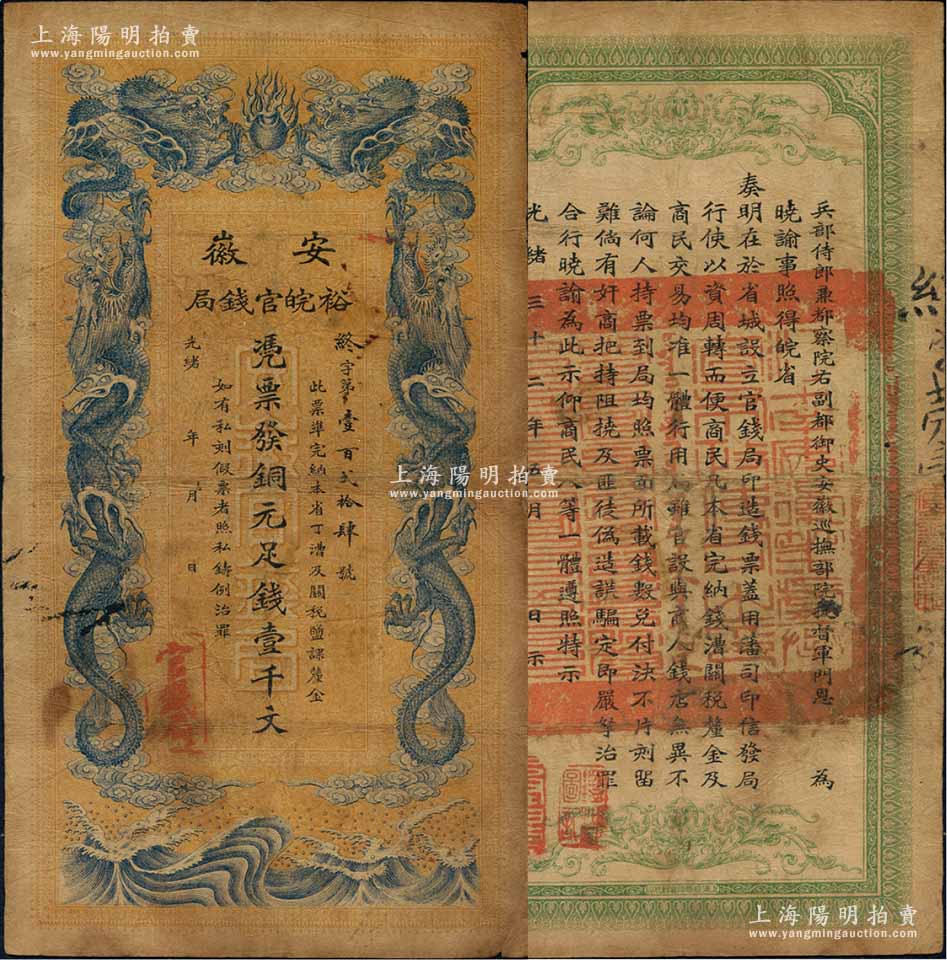 上海陽明拍賣
www.yangmingauction.com
安徽
裕皖官錢局
終字第壹百貳拾肆號
此票準完納本省丁漕及關稅鹽課釐金
憑票發銅元足錢壹千文
如有私刻假票者照私鑄例治罪
光緒 年 月 日
兵部侍郎兼都察院右副都御史安徽巡撫部院 督軍門恩 為
曉諭事照得皖省
奏明在於省城設立官錢局印造錢票蓋用藩司印信發局
行使以資周轉而便商民凡本省完納錢漕關稅釐金及
商民交易均准一體行用 雖官設與商人錢店無異不
論何人持票到局均照票面所載錢數兌付決不片刻留
難倘有奸商把持阻撓及匪徒偽造誆騙定即嚴拏治罪
合行曉諭為此示仰商民人等一體遵照特示
光緒三十二年 月 日示
上海陽明拍賣
www.yangmingauction.com
上海陽明拍賣
www.yangmingauction.com